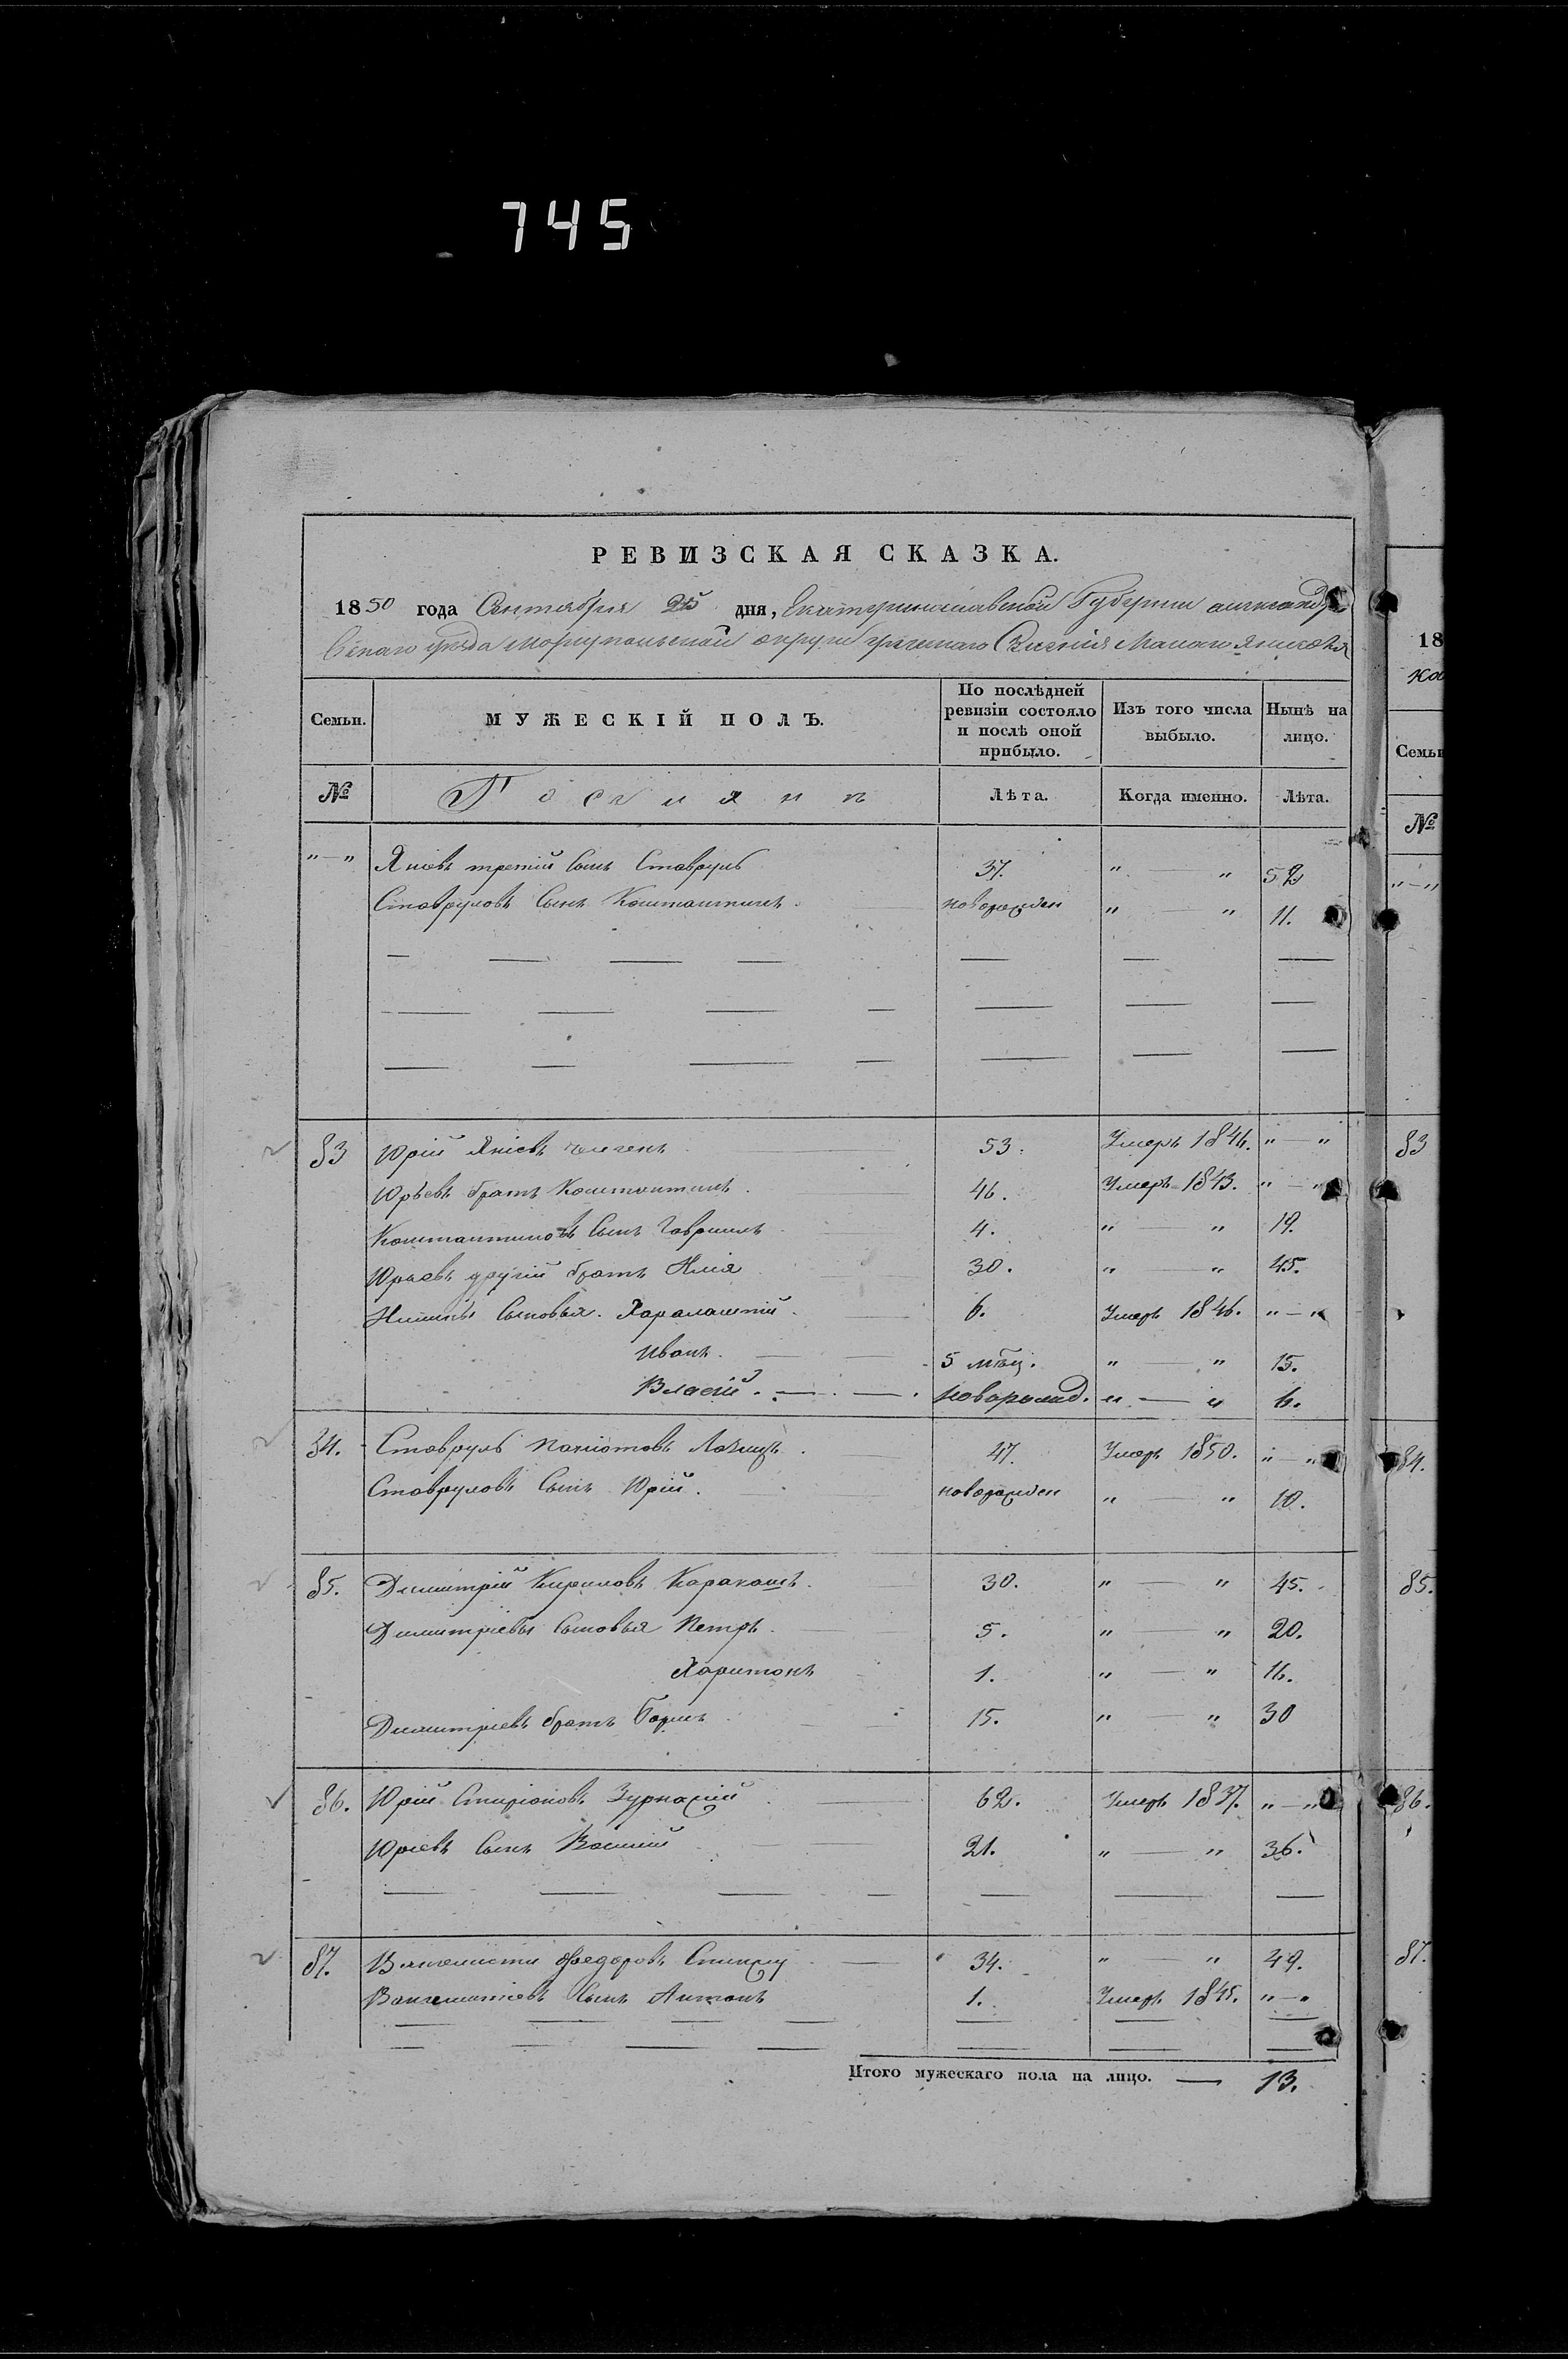 745
РЕВИЗСКАЯ СКАЗКА.
1850 года Сентября 25 дня, Екатеринославской Губернии александро
вскаго уезда Мариупольской округи греческаго Селения Малаго Янисоля
Семьи. МУЖЕСКІЙ ПОЛЪ. По послѣдней ревизіи состояло и послѣ оной прибыло. Изъ того числа выбыло. Нынѣ на лицо.
№ Поселянъ Лѣта. Когда именно. Лѣта.
"—" Яніевъ третій Сынъ Ставруль 37. " — " 52
Ставруловъ Сынъ Константинъ. новорожден " — " 11.
83 Юрій Яніевъ 53. Умеръ 1846. "—"
Юрьевъ братъ Константинъ. 46. Умеръ 1843. "—"
Константиновъ Сынъ Гавриилъ 4. " — " 19.
Юрьевъ другій братъ Илія 30. " — " 45.
Иліины Сыновья. Харалампій. 6. Умеръ 1846. "—"
Иванъ. 5 мѣц. " — " 15.
Власій. новорожд. " — " 6.
84. Ставруль 47. Умеръ 1850. "—"
Ставруловъ Сынъ Юрій. новорожден " — " 10.
85. Димитрій Кириловъ Каракашъ. 30. " — " 45.
Димитріевы Сыновья Петръ. 5. " — " 20.
Харитонъ 1. " — " 16.
Димитріевъ братъ 15. " — " 30
86. Юрій Спиріоновъ 62. Умеръ 1837. "—"
Юріевъ Сынъ Василій 21. " — " 36.
87. Феодоровъ 34. " — " 49.
Сынъ Антонъ 1. Умеръ 1845. "—"
Итого мужескаго пола на лицо. — 13.
18
Семьи
№
"—"
83
84.
85.
86.
87.